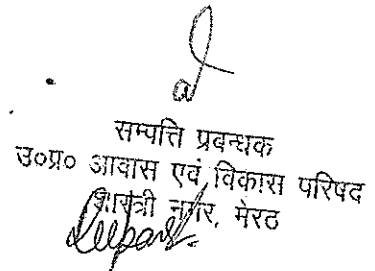 सम्पत्ति प्रबन्धक
उ०प्र० आवास एवं विकास परिषद
शास्त्री नगर, मेरठ
Deepak